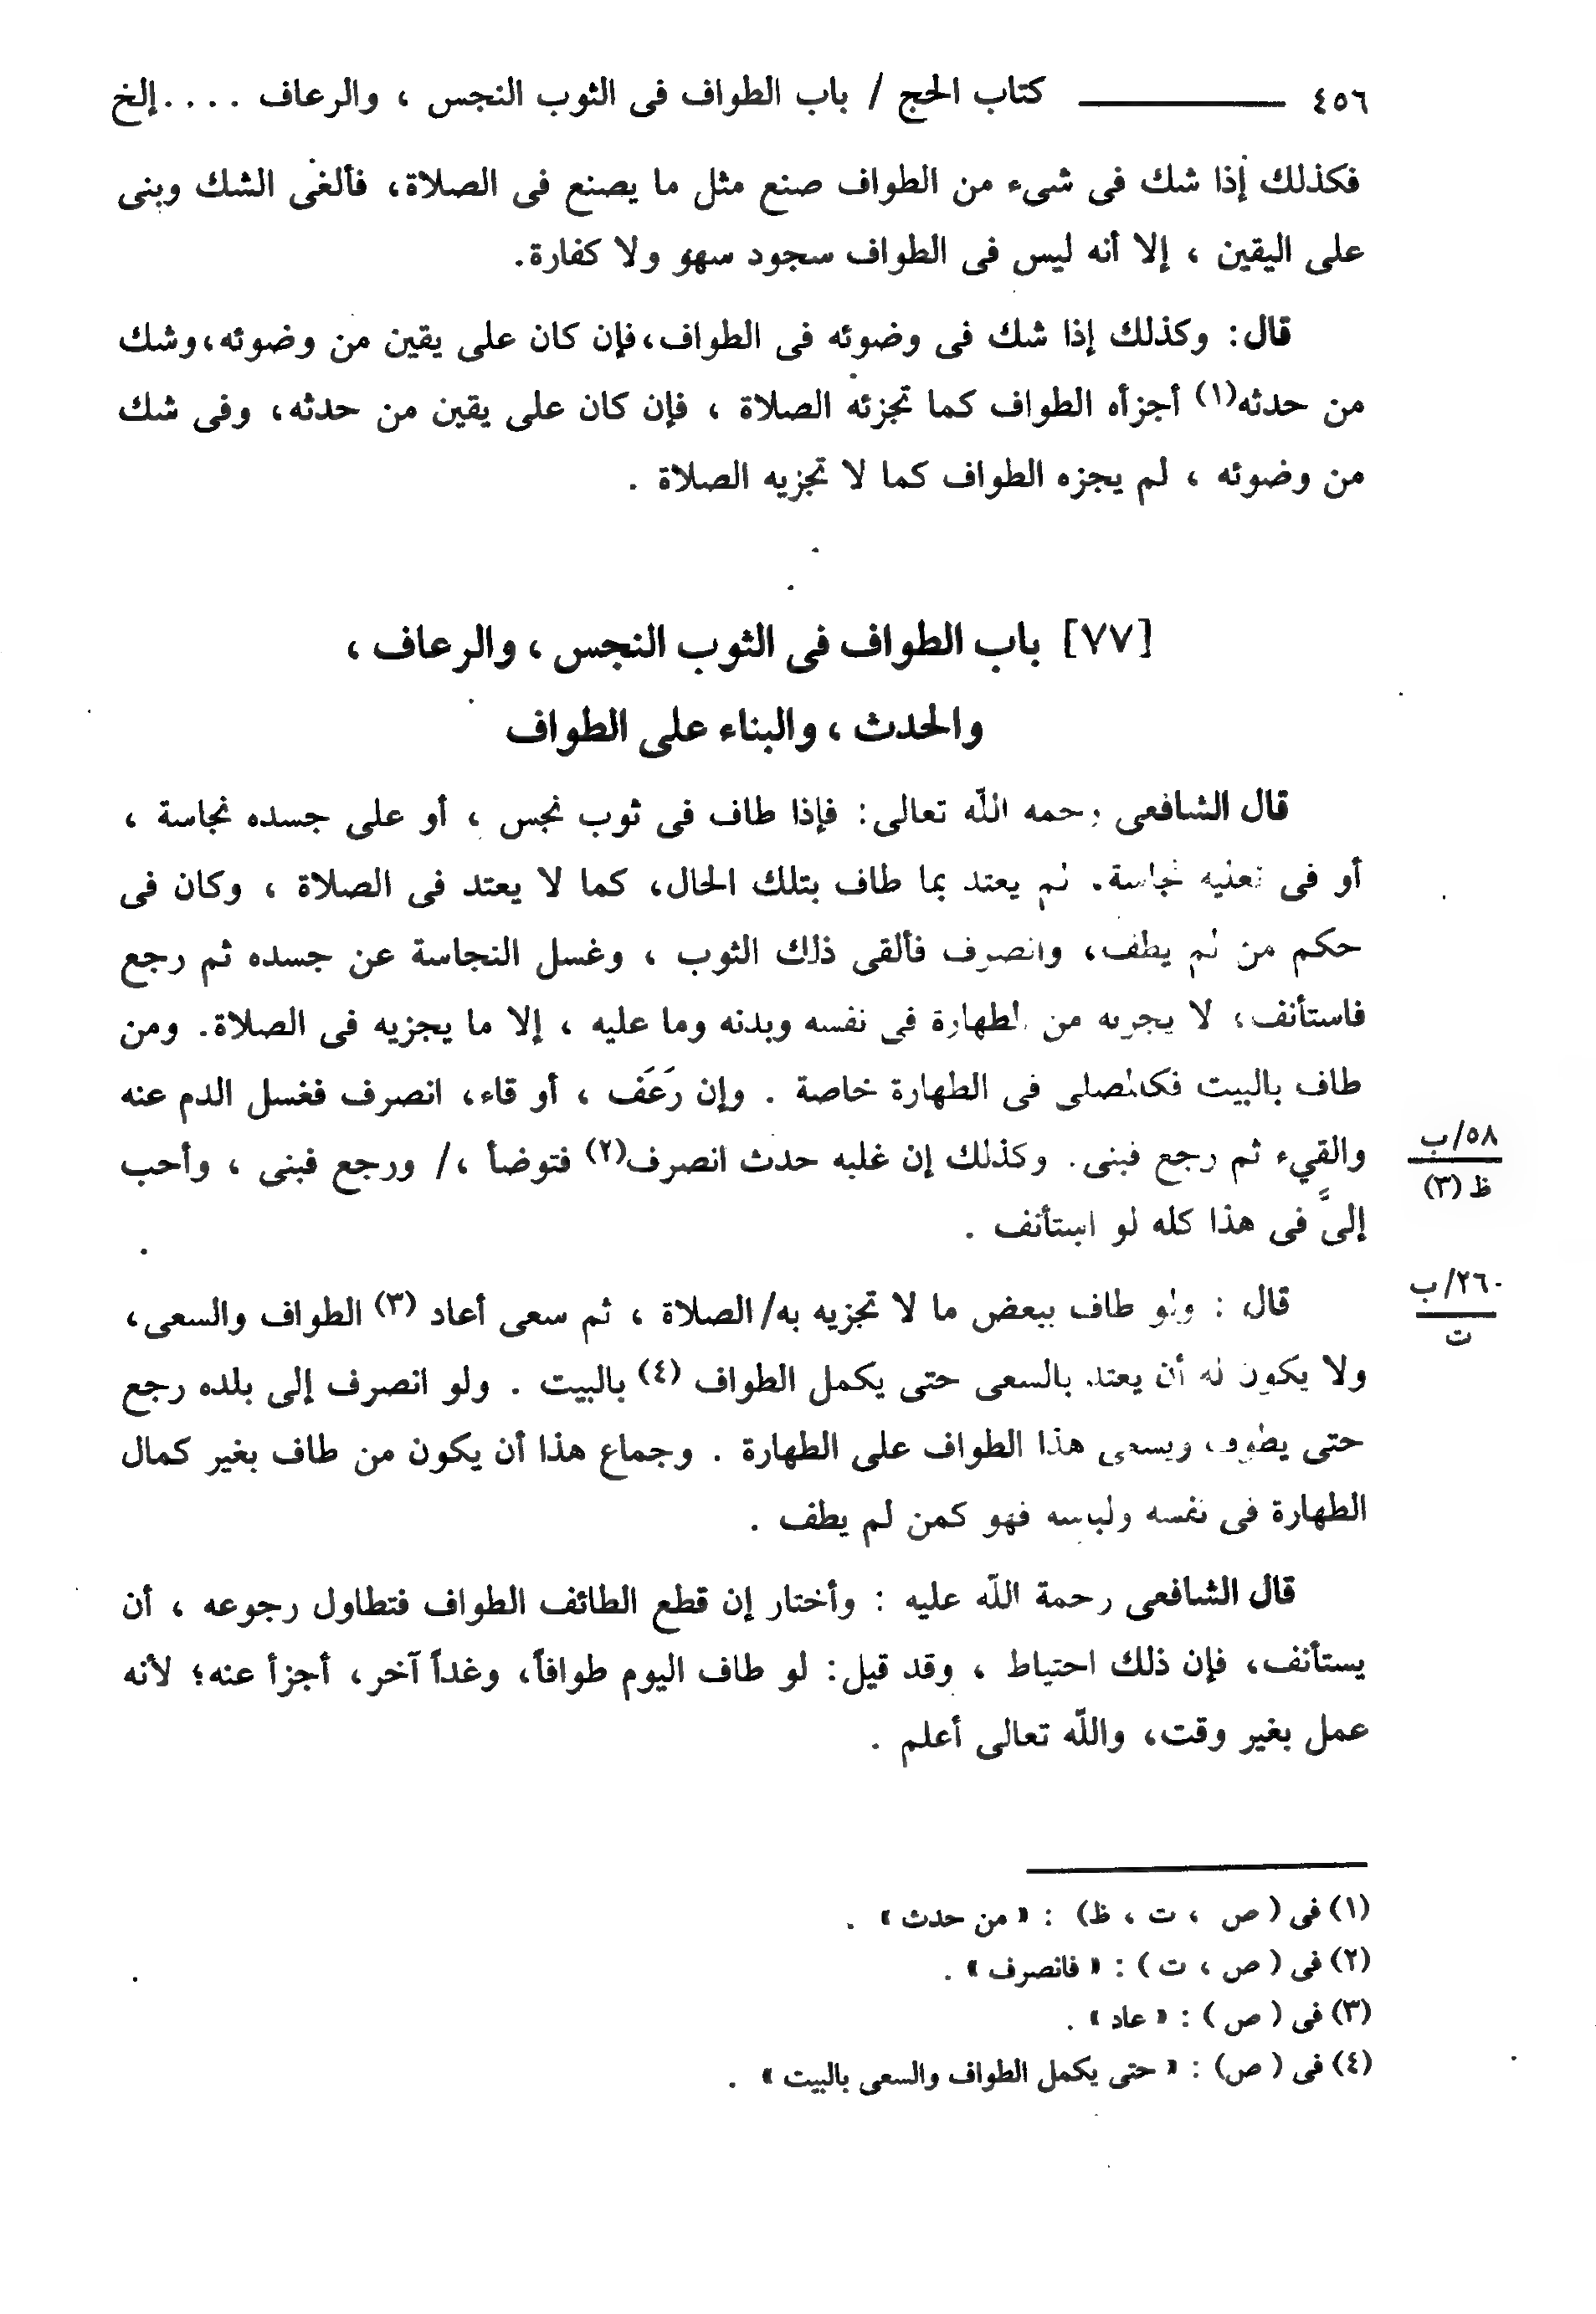 ٤٥٦ ـــــــ كتاب الحج / باب الطواف فى الثوب النجس ، والرعاف ....إلخ
فكذلك إذا شك فى شىء من الطواف صنع مثل ما يصنع فى الصلاة، فألغى الشك وبنى
على اليقين ، إلا أنه ليس فى الطواف سجود سهو ولا كفارة.
قال: وكذلك إذا شك فى وضوئه فى الطواف،فإن كان على يقين من وضوئه،وشك
من حدثه(١) أجزأه الطواف كما تجزئه الصلاة ، فإن كان على يقين من حدثه، وفى شك
من وضوئه ، لم يجزه الطواف كما لا تجزيه الصلاة .
[٧٧] باب الطواف فى الثوب النجس ، والرعاف ،
والحدث ، والبناء على الطواف
قال الشافعى رحمه الله تعالى: فإذا طاف فى ثوب نجس ، أو على جسده نجاسة ،
أو فى نعليه نجاسة. لم يعتد بما طاف بتلك الحال، كما لا يعتد فى الصلاة ، وكان فى
حكم من لم يطف، وانصرف فألقى ذلك الثوب ، وغسل النجاسة عن جسده ثم رجع
فاستأنف، لا يجزيه من الطهارة فى نفسه وبدنه وما عليه ، إلا ما يجزيه فى الصلاة. ومن
طاف بالبيت فكالمصلى فى الطهارة خاصة . وإن رَعَف ، أو قاء، انصرف فغسل الدم عنه
والقيء ثم رجع فبنى. وكذلك إن غلبه حدث انصرف(٢) فتوضأ ،/ ورجع فبنى ، وأحب
٥٨/ب
ظ (٣)
إلىَّ فى هذا كله لو استأنف .
قال : ولو طاف ببعض ما لا تجزيه به/ الصلاة ، ثم سعى أعاد (٣) الطواف والسعى،
٢٦٠/ب
ت
ولا يكون له أن يعتد بالسعى حتى يكمل الطواف (٤) بالبيت . ولو انصرف إلى بلده رجع
حتى يطوف ويسعى هذا الطواف على الطهارة . وجماع هذا أن يكون من طاف بغير كمال
الطهارة فى نفسه ولباسه فهو كمن لم يطف .
قال الشافعى رحمة الله عليه : وأختار إن قطع الطائف الطواف فتطاول رجوعه ، أن
يستأنف، فإن ذلك احتياط ، وقد قيل: لو طاف اليوم طوافاً، وغداً آخر، أجزأ عنه؛ لأنه
عمل بغير وقت، والله تعالى أعلم .
(١) فى ( ص ، ت ، ظ) : « من حدث » .
(٢) فى ( ص ، ت ) : « فانصرف » .
(٣) فى ( ص ) : « عاد » .
(٤) فى ( ص) : « حتى يكمل الطواف والسعى بالبيت » .